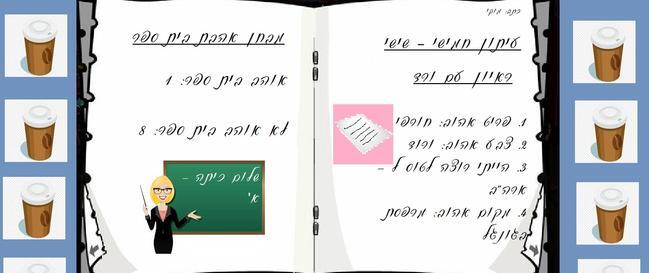 עיתון חמישי - שישי
ראיון עם ורד
1. פריט אהוב: חורפי
2. צבע אהוב: ורוד
3. הייתי רוצה לטוס ל -
ארה"ב
4. מקום אהוב: מרפסת
בג'ונגל
מבחן אהבת בית ספר
אוהב בית ספר: 1
לא אוהב בית ספר: 8
שלום כיתה -
א'